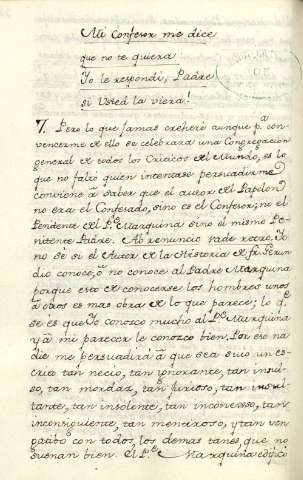 Mi Confesor me dice
que no te quiera
Yo le respondi, Padre
si Usted la viera!
7. Pero lo que jamas creheré aunque pª con
vencerme de ello se celebrara una Congregacion
general de todos los Criticos del Mundo, es lo
que no faltó quien intentase persuadirme
conviene â saber que el autor del Papelon
no era el Confesado, sino es el Confesor; no el
Penitente del Pe. Marquina sino el mismo Pe-
nitente Padre. Abrenuncio vade retro. Yo
no se si el Autor de la Historia de fr. Gerun
dio conoce, ô no conoce al Padre Marquina
porque esto de conocerse los hombres unos
â otros es mas obra de lo que parece; lo qe.
se es que Yo conozco mucho al Pe. Marquina
y â mi parecer le conozco bien. Por eso na
die me persuadirá â que sea suio un es-
crito tan necio, tan ignorante, tan insul-
so, tan mordaz, tan furioso, tan insul-
tante, tan insolente, tan inconexo, tan
inconsiguiente, tan mentiroso, y tan ven
gatibo con todos, los demas tanes, que no
suenan bien. El Pe. Marquina edificó